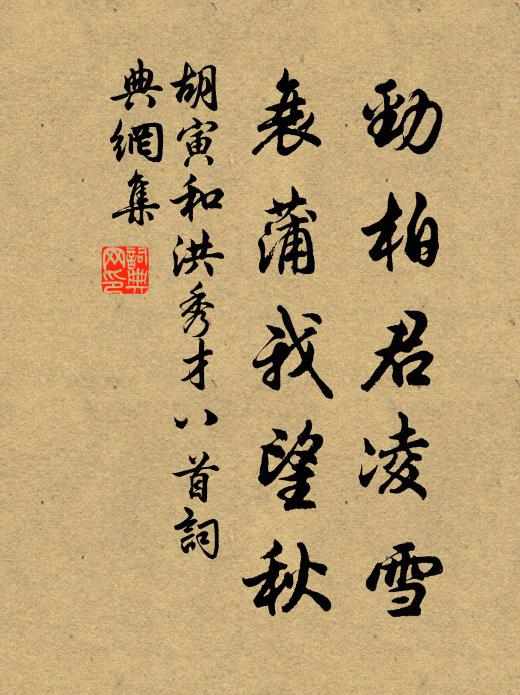 勁柏君凌雪
衰蒲我望秋
胡寅和洪秀才八首詞
典網集
詞典
网印